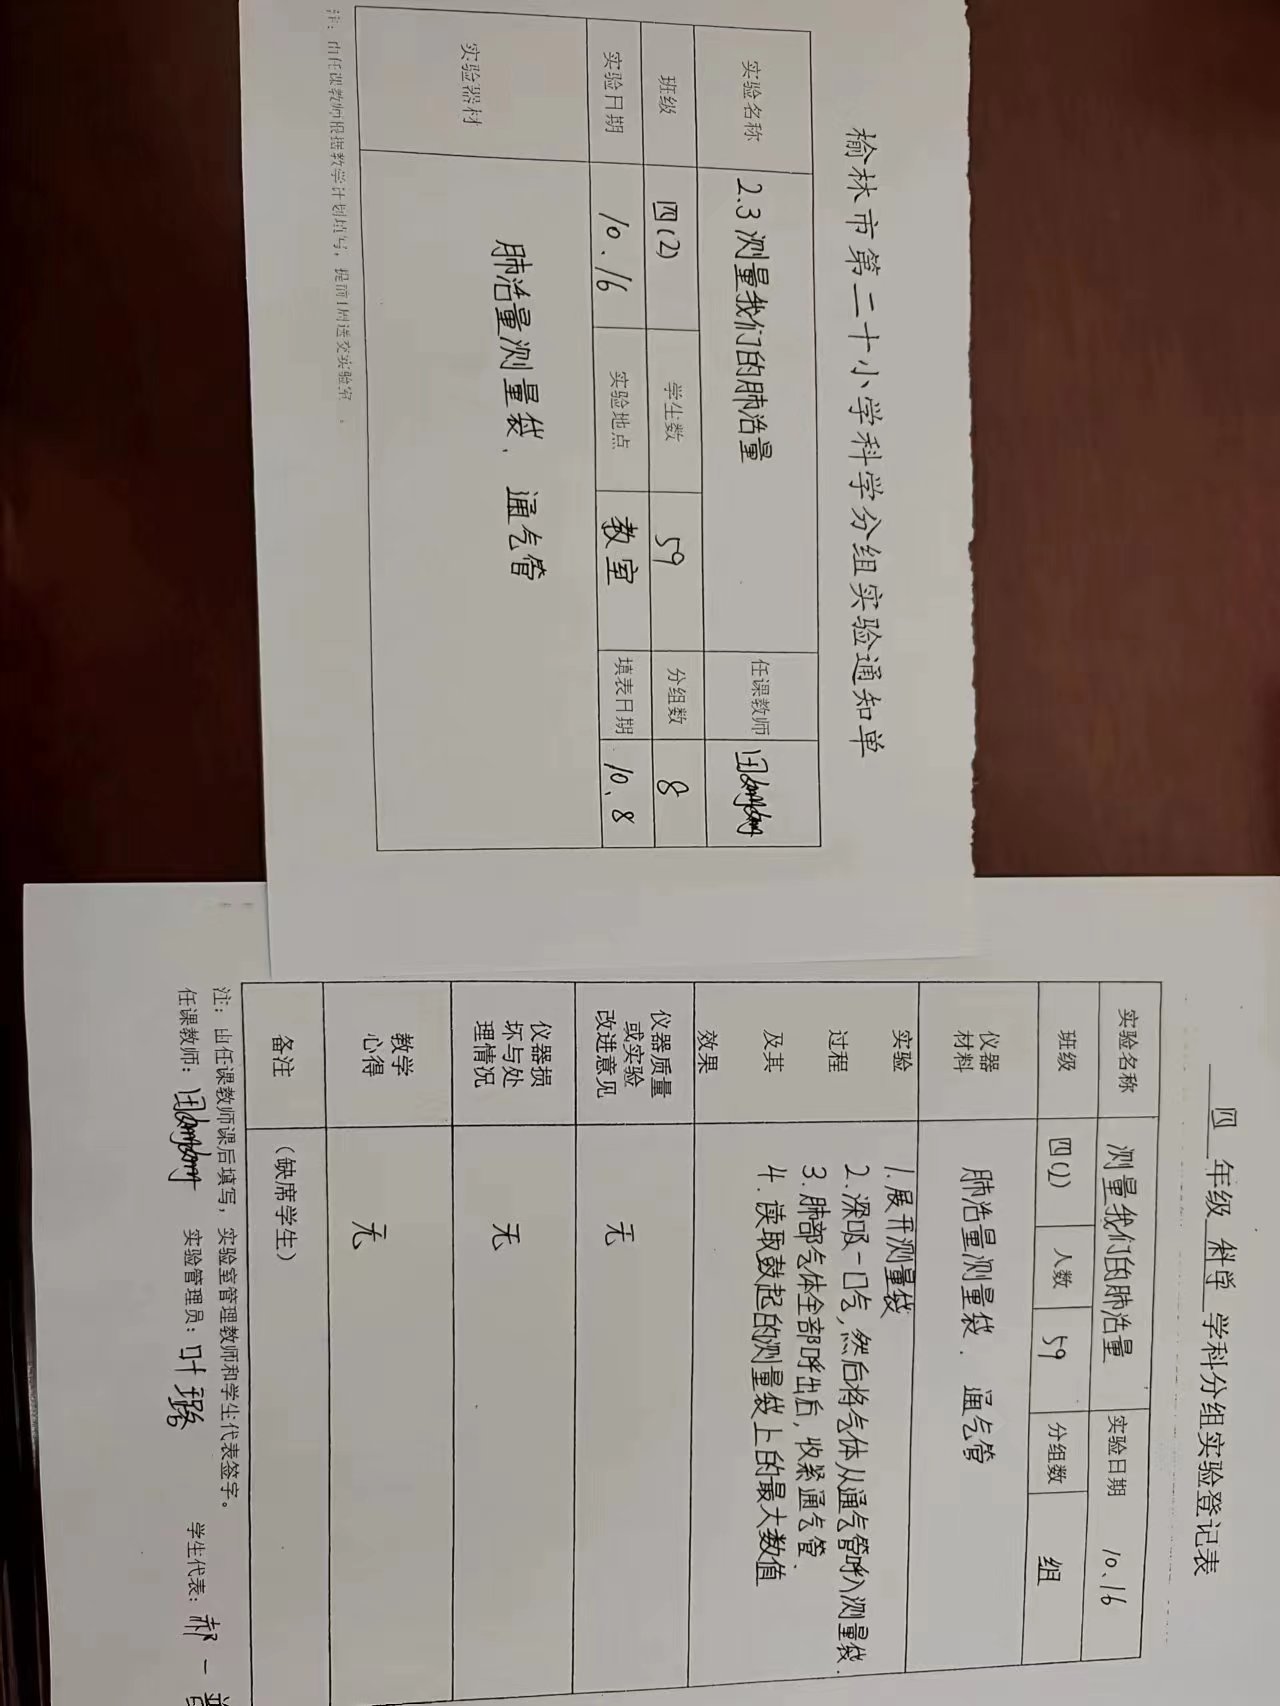 榆林市第二十小学科学分组实验通知单
实验名称 2.3 测量我们的肺活量 任课教师
班级 四(2) 学生数 59 分组数 8
实验日期 10.16 实验地点 教室 填表日期 10.8
实验器材 肺活量测量袋、通气管
注：由任课教师根据教学计划填写，提前1周送交实验室。
四 年级 科学 学科分组实验登记表
实验名称 测量我们的肺活量 实验日期 10.16
班级 四(2) 人数 59 分组数 组
仪器材料 肺活量测量袋、通气管
实验过程及其效果
1.展开测量袋
2.深吸一口气,然后将气体从通气管呼入测量袋.
3.肺部气体全部呼出后,收紧通气管.
4.读取鼓起的测量袋上的最大数值
仪器质量或实验改进意见 无
仪器损坏与处理情况 无
教学心得 无
备注 (缺席学生)
注：由任课教师课后填写，实验室管理教师和学生代表签字。
任课教师： 实验管理员：叶璐 学生代表：郝一